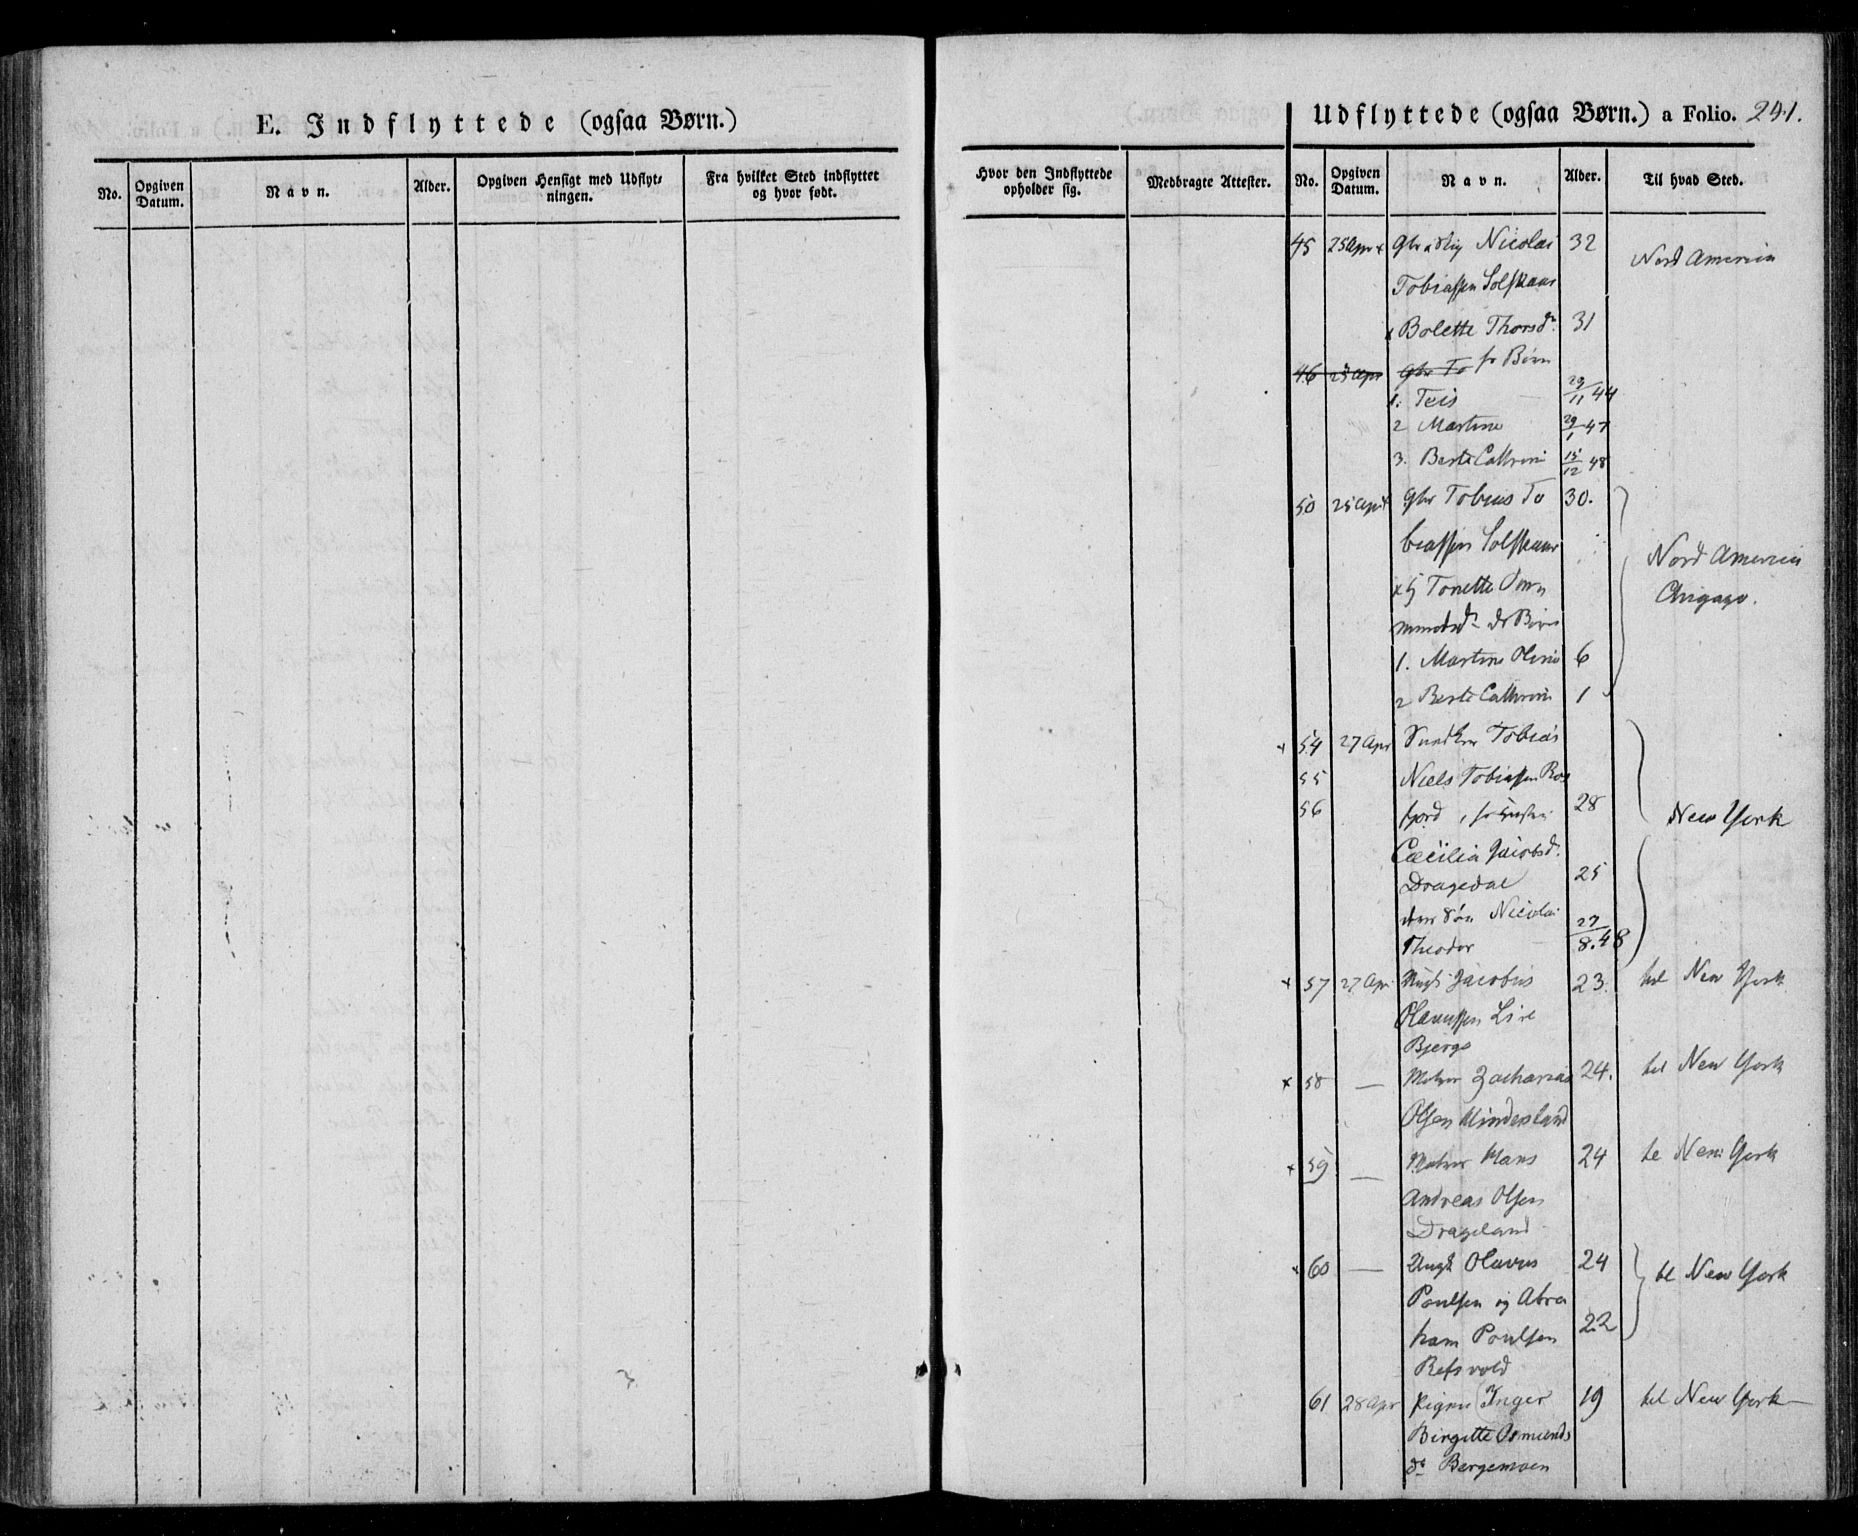 E. Indflyttede (ogsaa Børn.)
No.
Opgiven Datum.
Navn.
Alder.
Opgiven Hensigt med Udflyt-
ningen.
Fra hvilket Sted indflyttet
og hvor født.
Udflyttede (ogsaa Børn.) a Folio. 241.
Hvor den Indflyttede
opholder sig.
Medbragte Attester.
No.
Opgiven Datum.
Navn.
Alder.
Til hvad Sted.
45 25 Apr x Nicolai 32 Nord America
Tobiassen
x Bolette Thorsd. 31
46 25 Apr Gbr To Børn
1. Teis 29/11 44
2 Martine 29/1 47
3. Berte Cathrine 15/12 48
50 25 Apr x Gbr Tobias To 30.
biassen Nord America
x Tonette Chigago.
1. Martine 6
2 Berte Cathrine 1
x 54 27 Apr Tobias
55 Niels Tobiassen Ros
56 fjord, 28 New York
Cæcilia Jacobsd.
Dragedal 25
Søn Nicolai
Theodor 27/8.48
x 57 27 Apr Ungk Jacobus 23. til New York
Bjerge
x 58 — Zacharias 24. til New York
Olsen
x 59 — Hans 24 til New York
Andreas Olsen
Drageland
x 60 — Ungk Olavus 24 til New York
Poulsen og Abra
ham Poulsen 22
Refsvold
61 28 Apr Pigen Inger 19 til New York
Birgitte Osmunds
dr Bergemoen